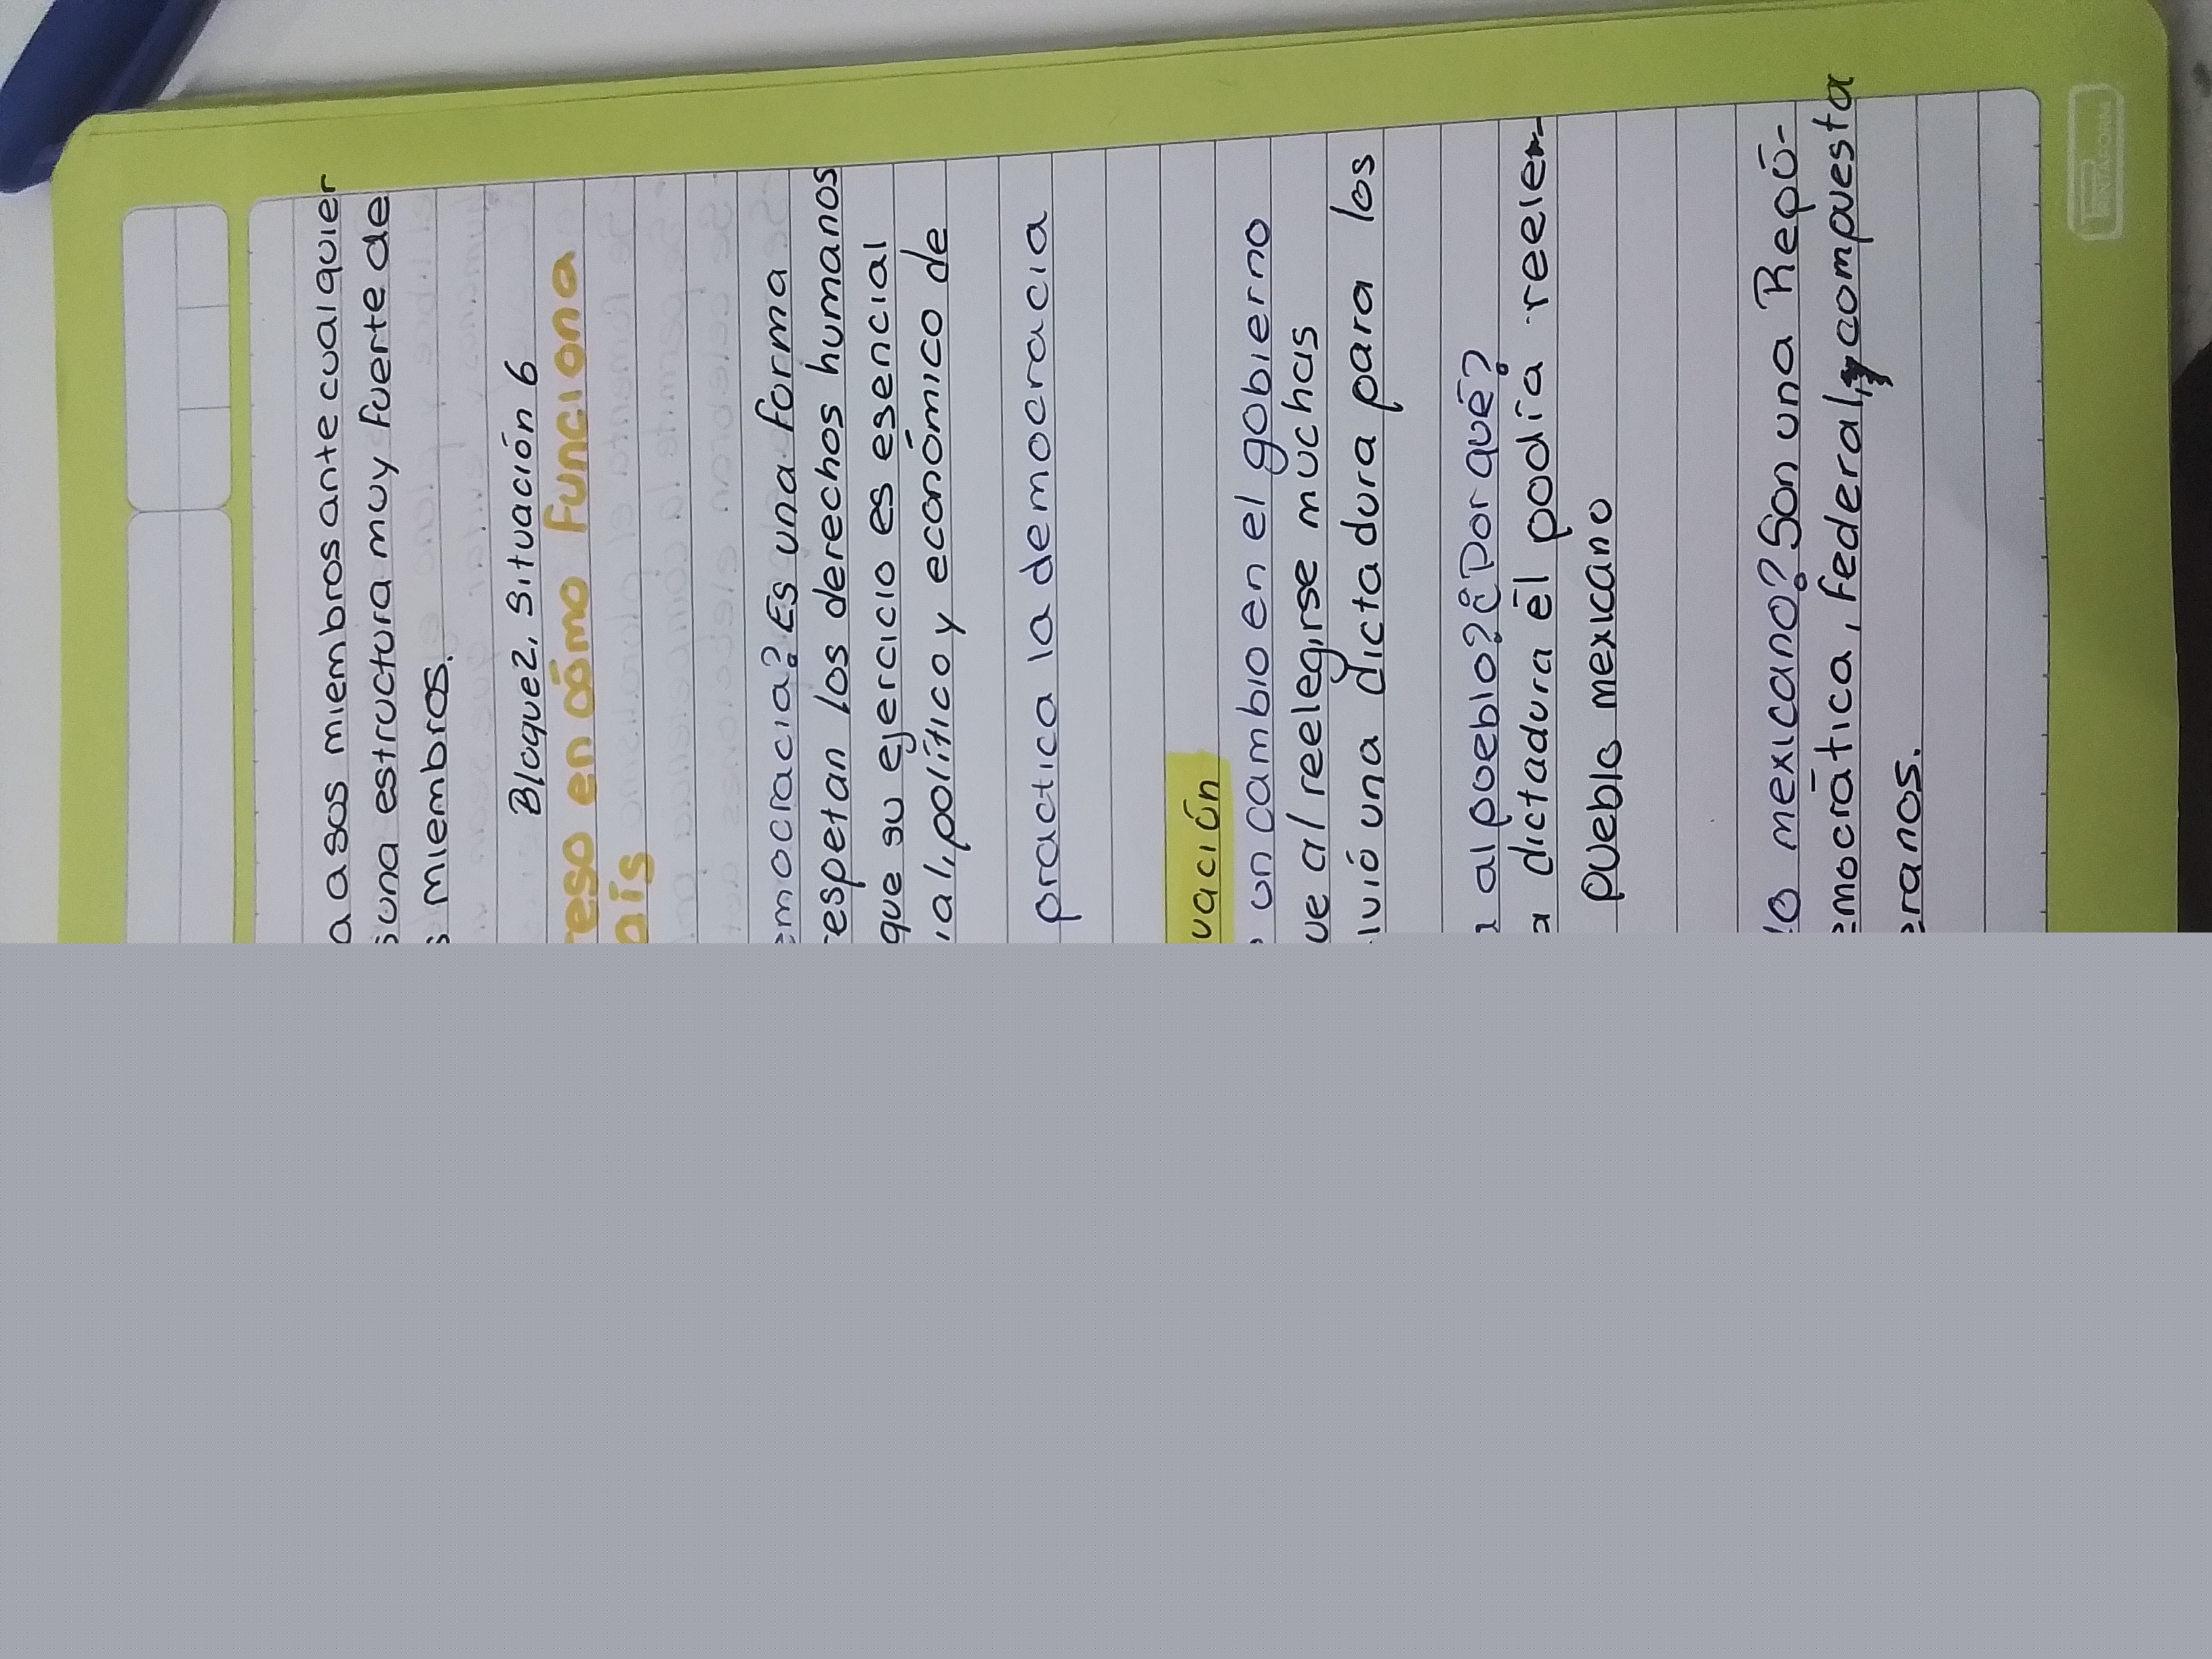 a a sus miembros ante cualquier
una estructura muy fuerte de
miembros.
Bloque 2, Situación 6
eso en cómo funciona
país
emocracia? Es una forma
espetan los derechos humanos
que su ejercicio es esencial
ial, político y económico de
practica la democracia
vación
un cambio en el gobierno
ue al reelegirse muchas
ivió una dictadura para los
al pueblo? ¿Por qué?
a dictadura él podía reele
pueblo mexicano
lo mexicano? Son una Repú-
emocrática, Federal, compuesta
eranos.
PRINTAFORM